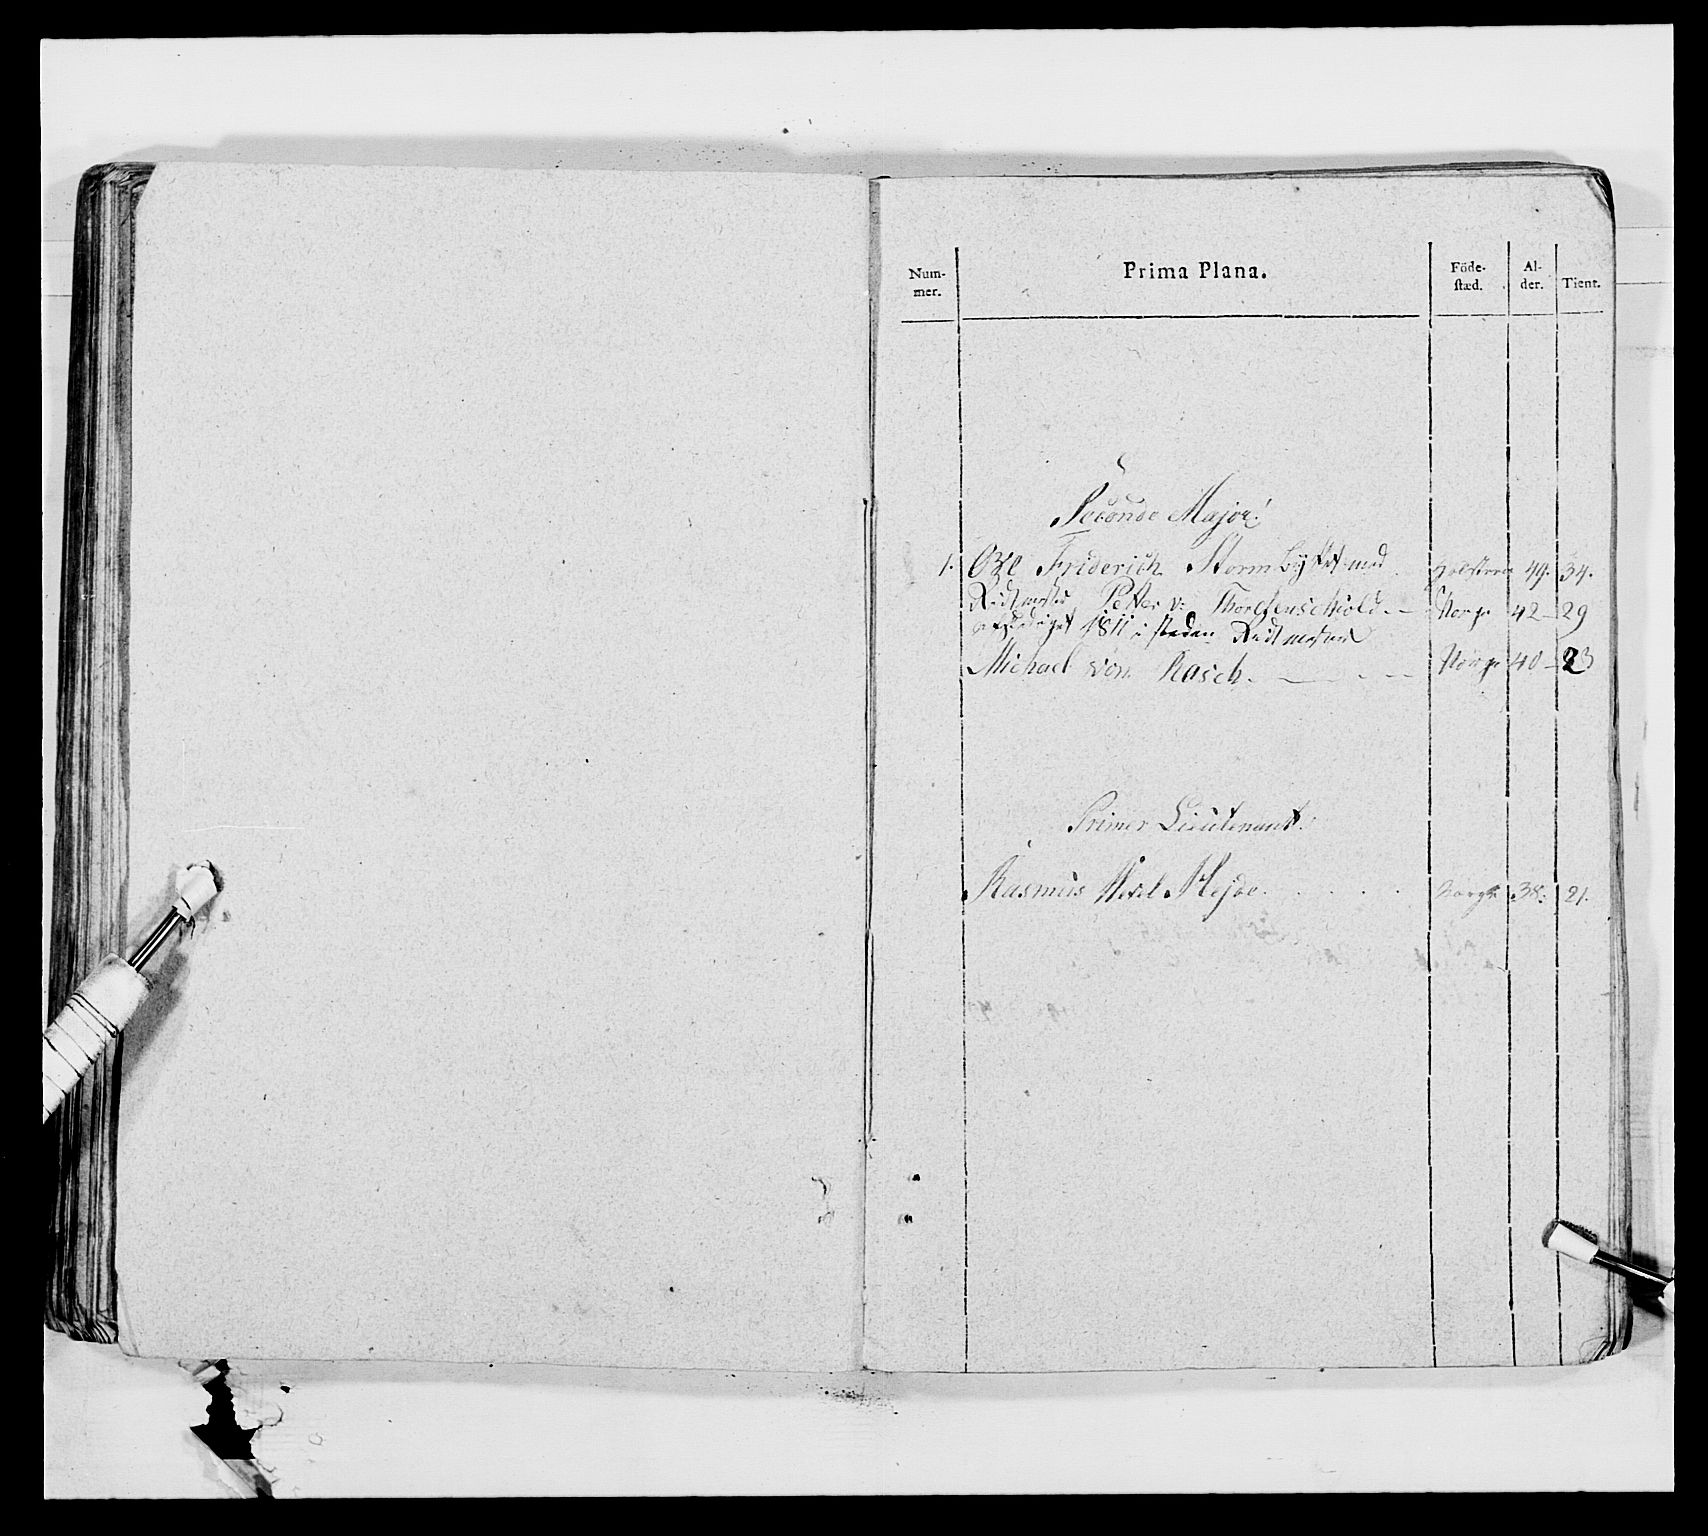 Num-
mer.
Prima Plana.
Föde-
stæd.
Al-
der.
Tient.
Seconde Major.
1. Friderich Storm byttet med Holsteen 49. 34.
Ridtmester Petter v: Thorstenschiold. Norge 42 29
afskediget 1811 i steden Ridtmester
Michael von Rasch. Norge 40 23
Primer Lieutenant.
Rasmus Hejde. Norge 38. 21.